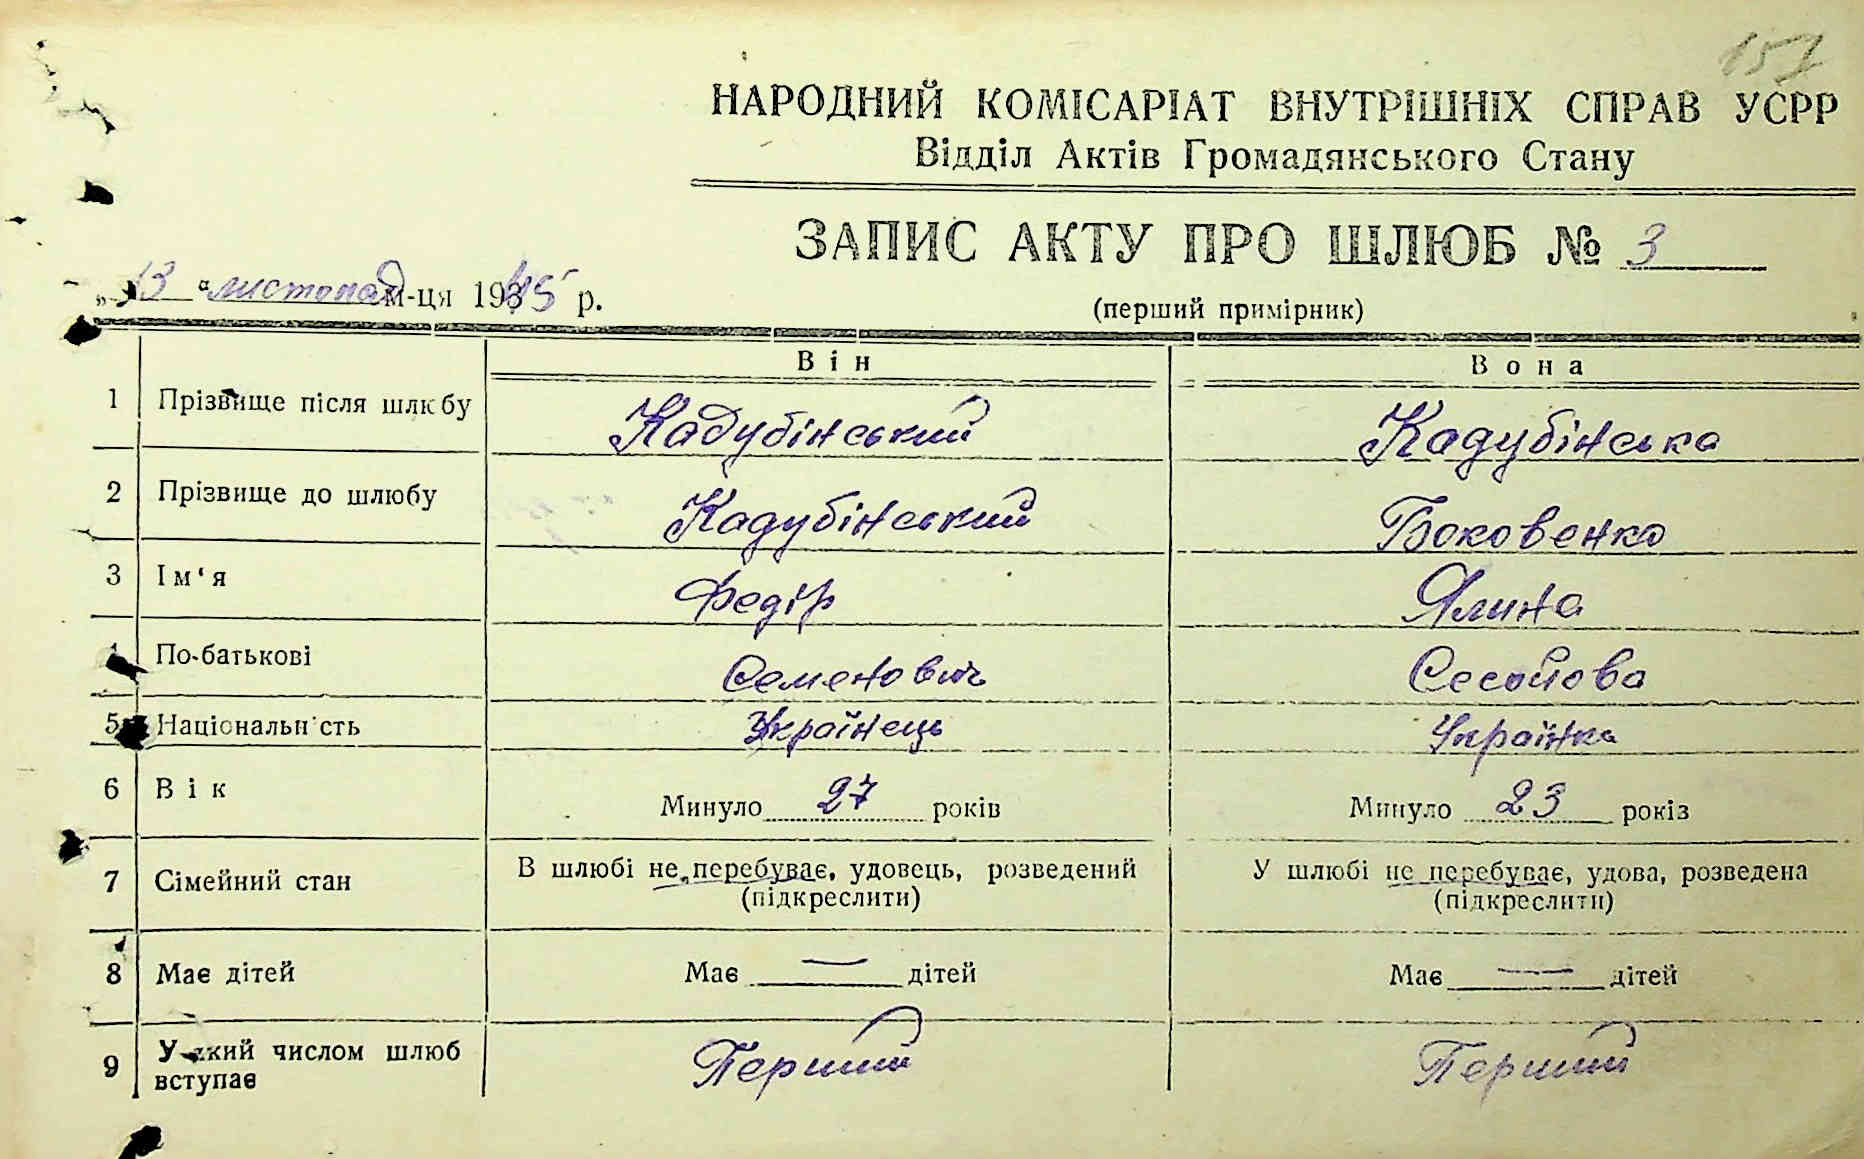 157
НАРОДНИЙ КОМІСАРІАТ ВНУТРІШНІХ СПРАВ УСРР
Відділ Актів Громадянського Стану
ЗАПИС АКТУ ПРО ШЛЮБ № 3
„ 13 “ листопад м-ця 1945 р.
(перший примірник)
Він Вона
1 Прізвище після шлюбу Кадубінський Кадубінська
2 Прізвище до шлюбу Кадубінський Боковенко
3 Ім‘я Федір Ялина
4 По-батькові Семенович
5 Національність Українець Українка
6 Вік Минуло 27 років Минуло 23 років
7 Сімейний стан В шлюбі не перебуває, удовець, розведений У шлюбі не перебуває, удова, розведена
(підкреслити) (підкреслити)
8 Має дітей Має — дітей Має — дітей
9 У який числом шлюб Перший Перший
вступає